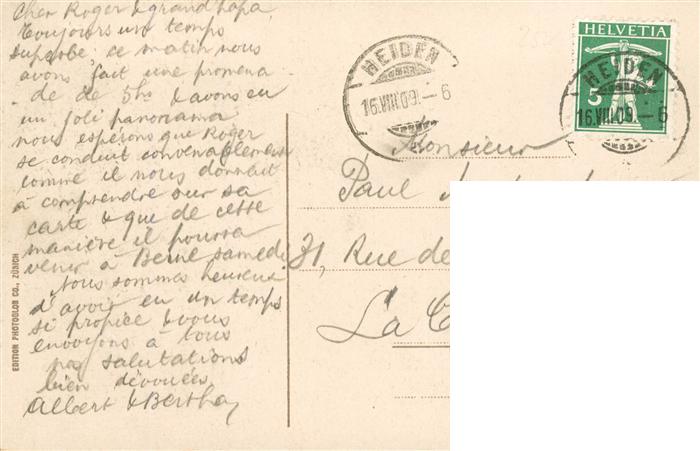 Cher Roger & grand papa,
Toujours un temps
superbe ce matin nous
avons fait une promena
de de 5hs & avons eu
un joli panorama
nous espérons que Roger
se conduit convenablement
comme il nous donnait
à comprendre sur sa
carte & que de cette
manière il pourra
venir à Berne samedi.
Nous sommes heureux
d'avoir eu un temps
si propice & vous
envoyons à tous
nos salutations
bien dévouées
Albert & Bertha
EDITION PHOTOGLOB CO., ZÜRICH
HEIDEN
16.VIII.09.-6
HELVETIA
5
HEIDEN
16.VIII.09.-6
Monsieur
Paul
31, Rue de
La C